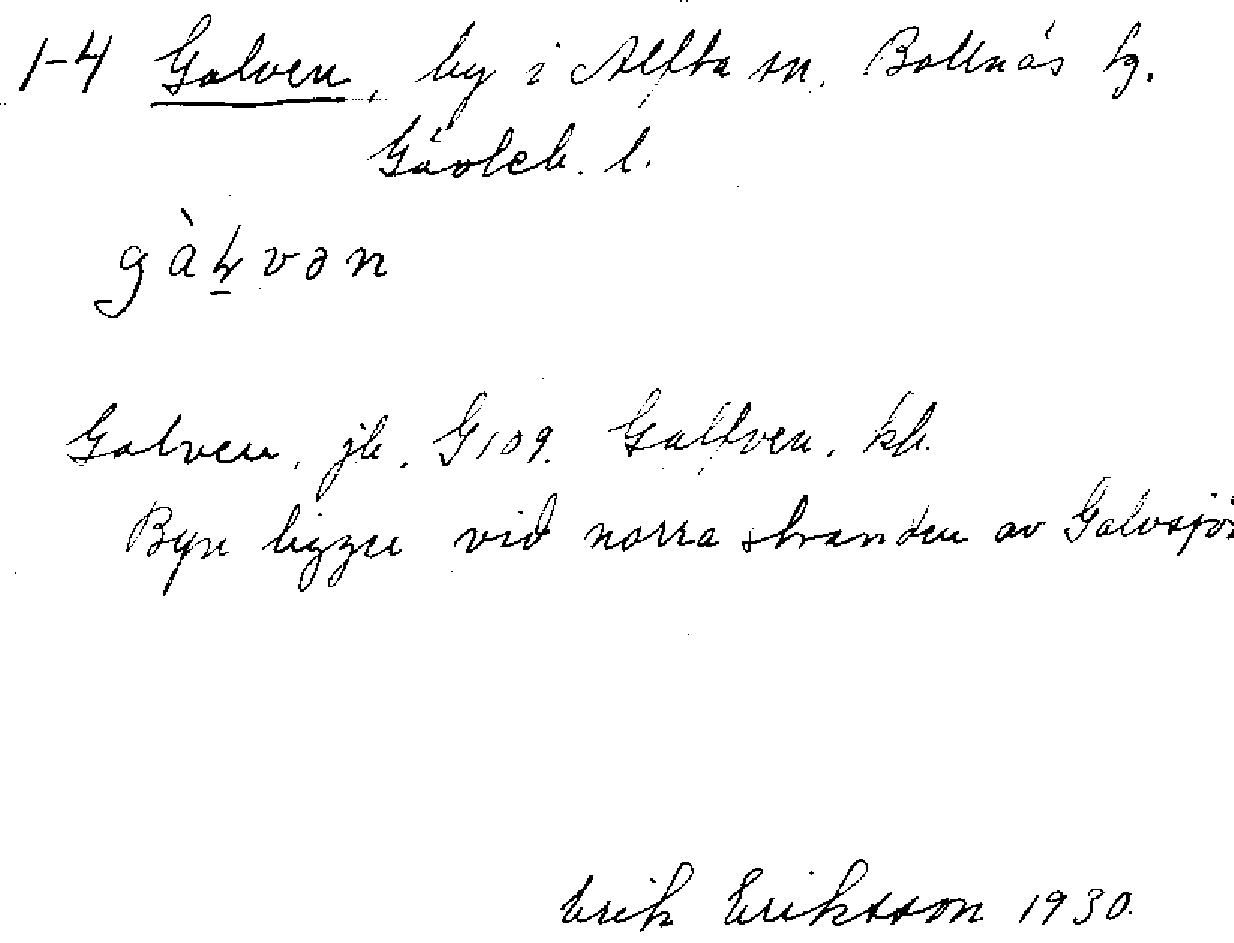 1-4 Galven, by i Alfta sn. Bollnäs tg.
Gävleb. l.
gàꞎvən
Galven, jb. G109. Galfven, kb.
Byn ligger vid norra stranden av Galvsjön
Erik Eriksson 1930.